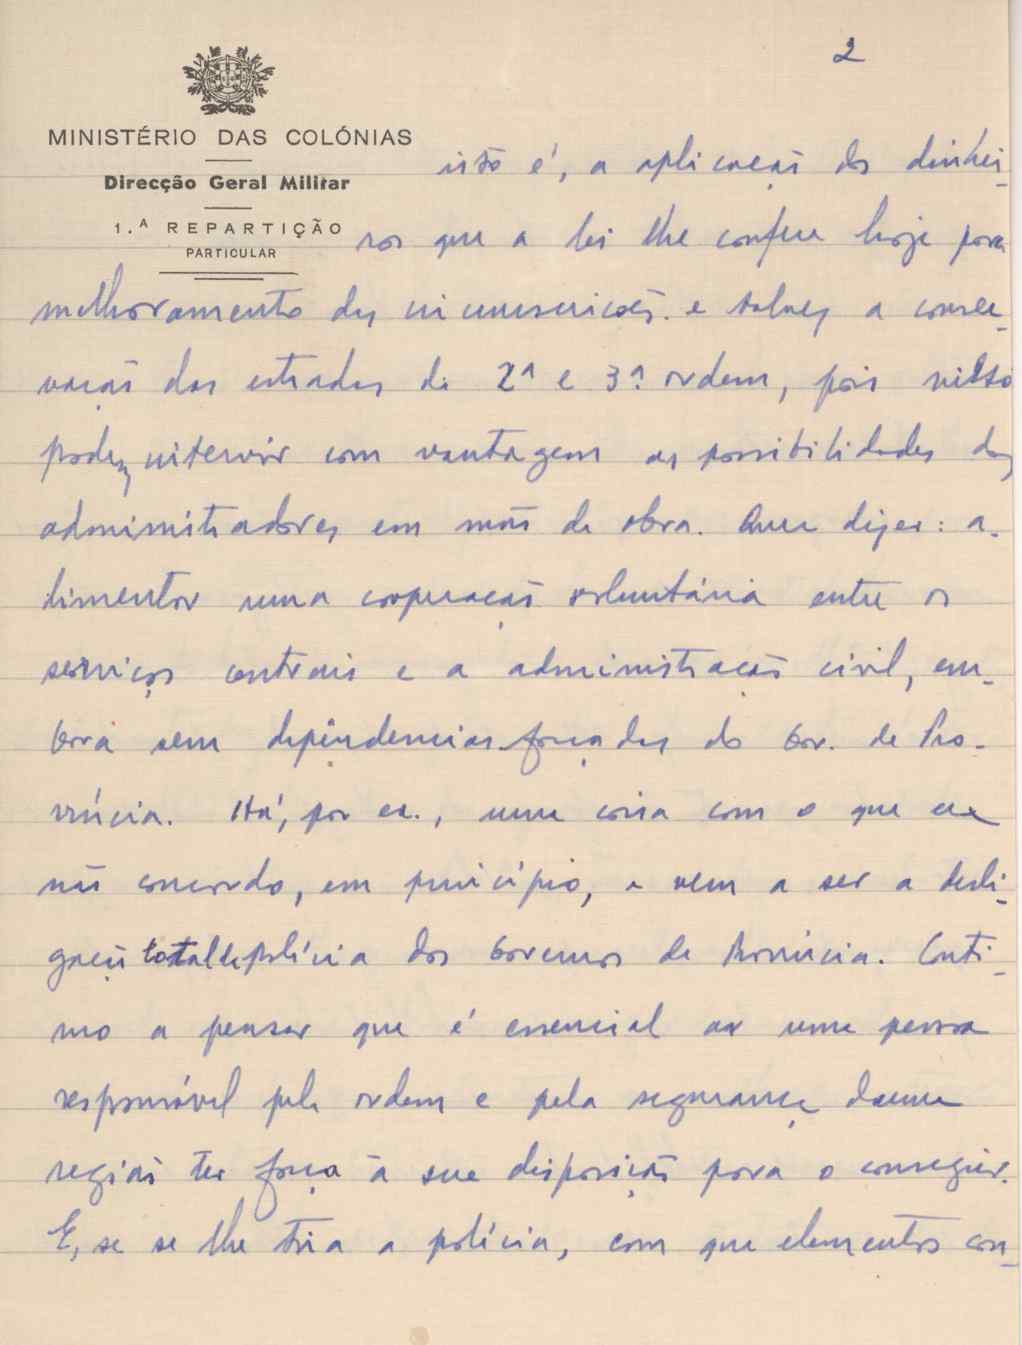 2
MINISTÉRIO DAS COLÓNIAS
Direcção Geral Militar
1.ª REPARTIÇÃO
PARTICULAR
isto é, a aplicação dos dinhei-
ros que a lei lhe confere hoje para
melhoramento das circunscrições. e talvez a conser-
vação das estradas de 2ª e 3ª ordem, pois nisso
podem intervir com vantagem as possibilidades dos
administradores em mão de obra. Quer dizer: a-
limentar uma cooperação voluntária entre os
serviços centrais e a administração civil, em-
bora sem dependencias forçadas do Gov. de Pro-
vincia. Há, por ex., uma coisa com o que eu
não concordo, em princípio, e vem a ser a desli-
gação total de polícia dos Governos de Provincia. Conti-
nuo a pensar que é essencial a uma pessoa
responsável pela ordem e pela segurança duma
região ter força à sua disposição para o conseguir.
E, se se lhe tira a polícia, com que elementos con-